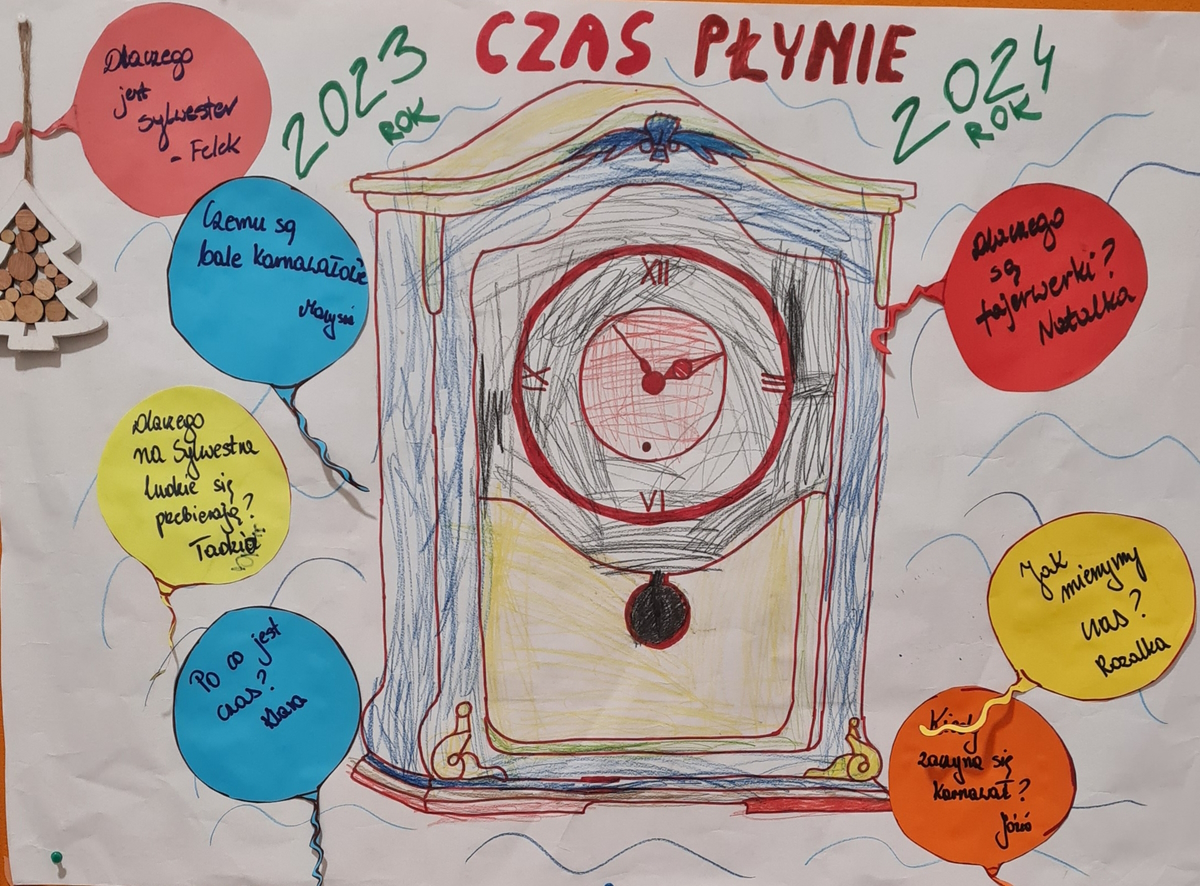 CZAS PŁYNIE
2023
ROK
2024
ROK
Dlaczego
jest
sylwester
- Felek
Czemu są
bale karnawałowe
Marysia
Dlaczego
na Sylwestra
ludzie się
przebierają?
Tadzio
Po co jest
czas?
Klara
XII
III
VI
IX
Dlaczego
są
fajerwerki?
Natalka
Jak
mierzymy
czas?
Rozalka
Kiedy
zaczyna się
karnawał?
Józio